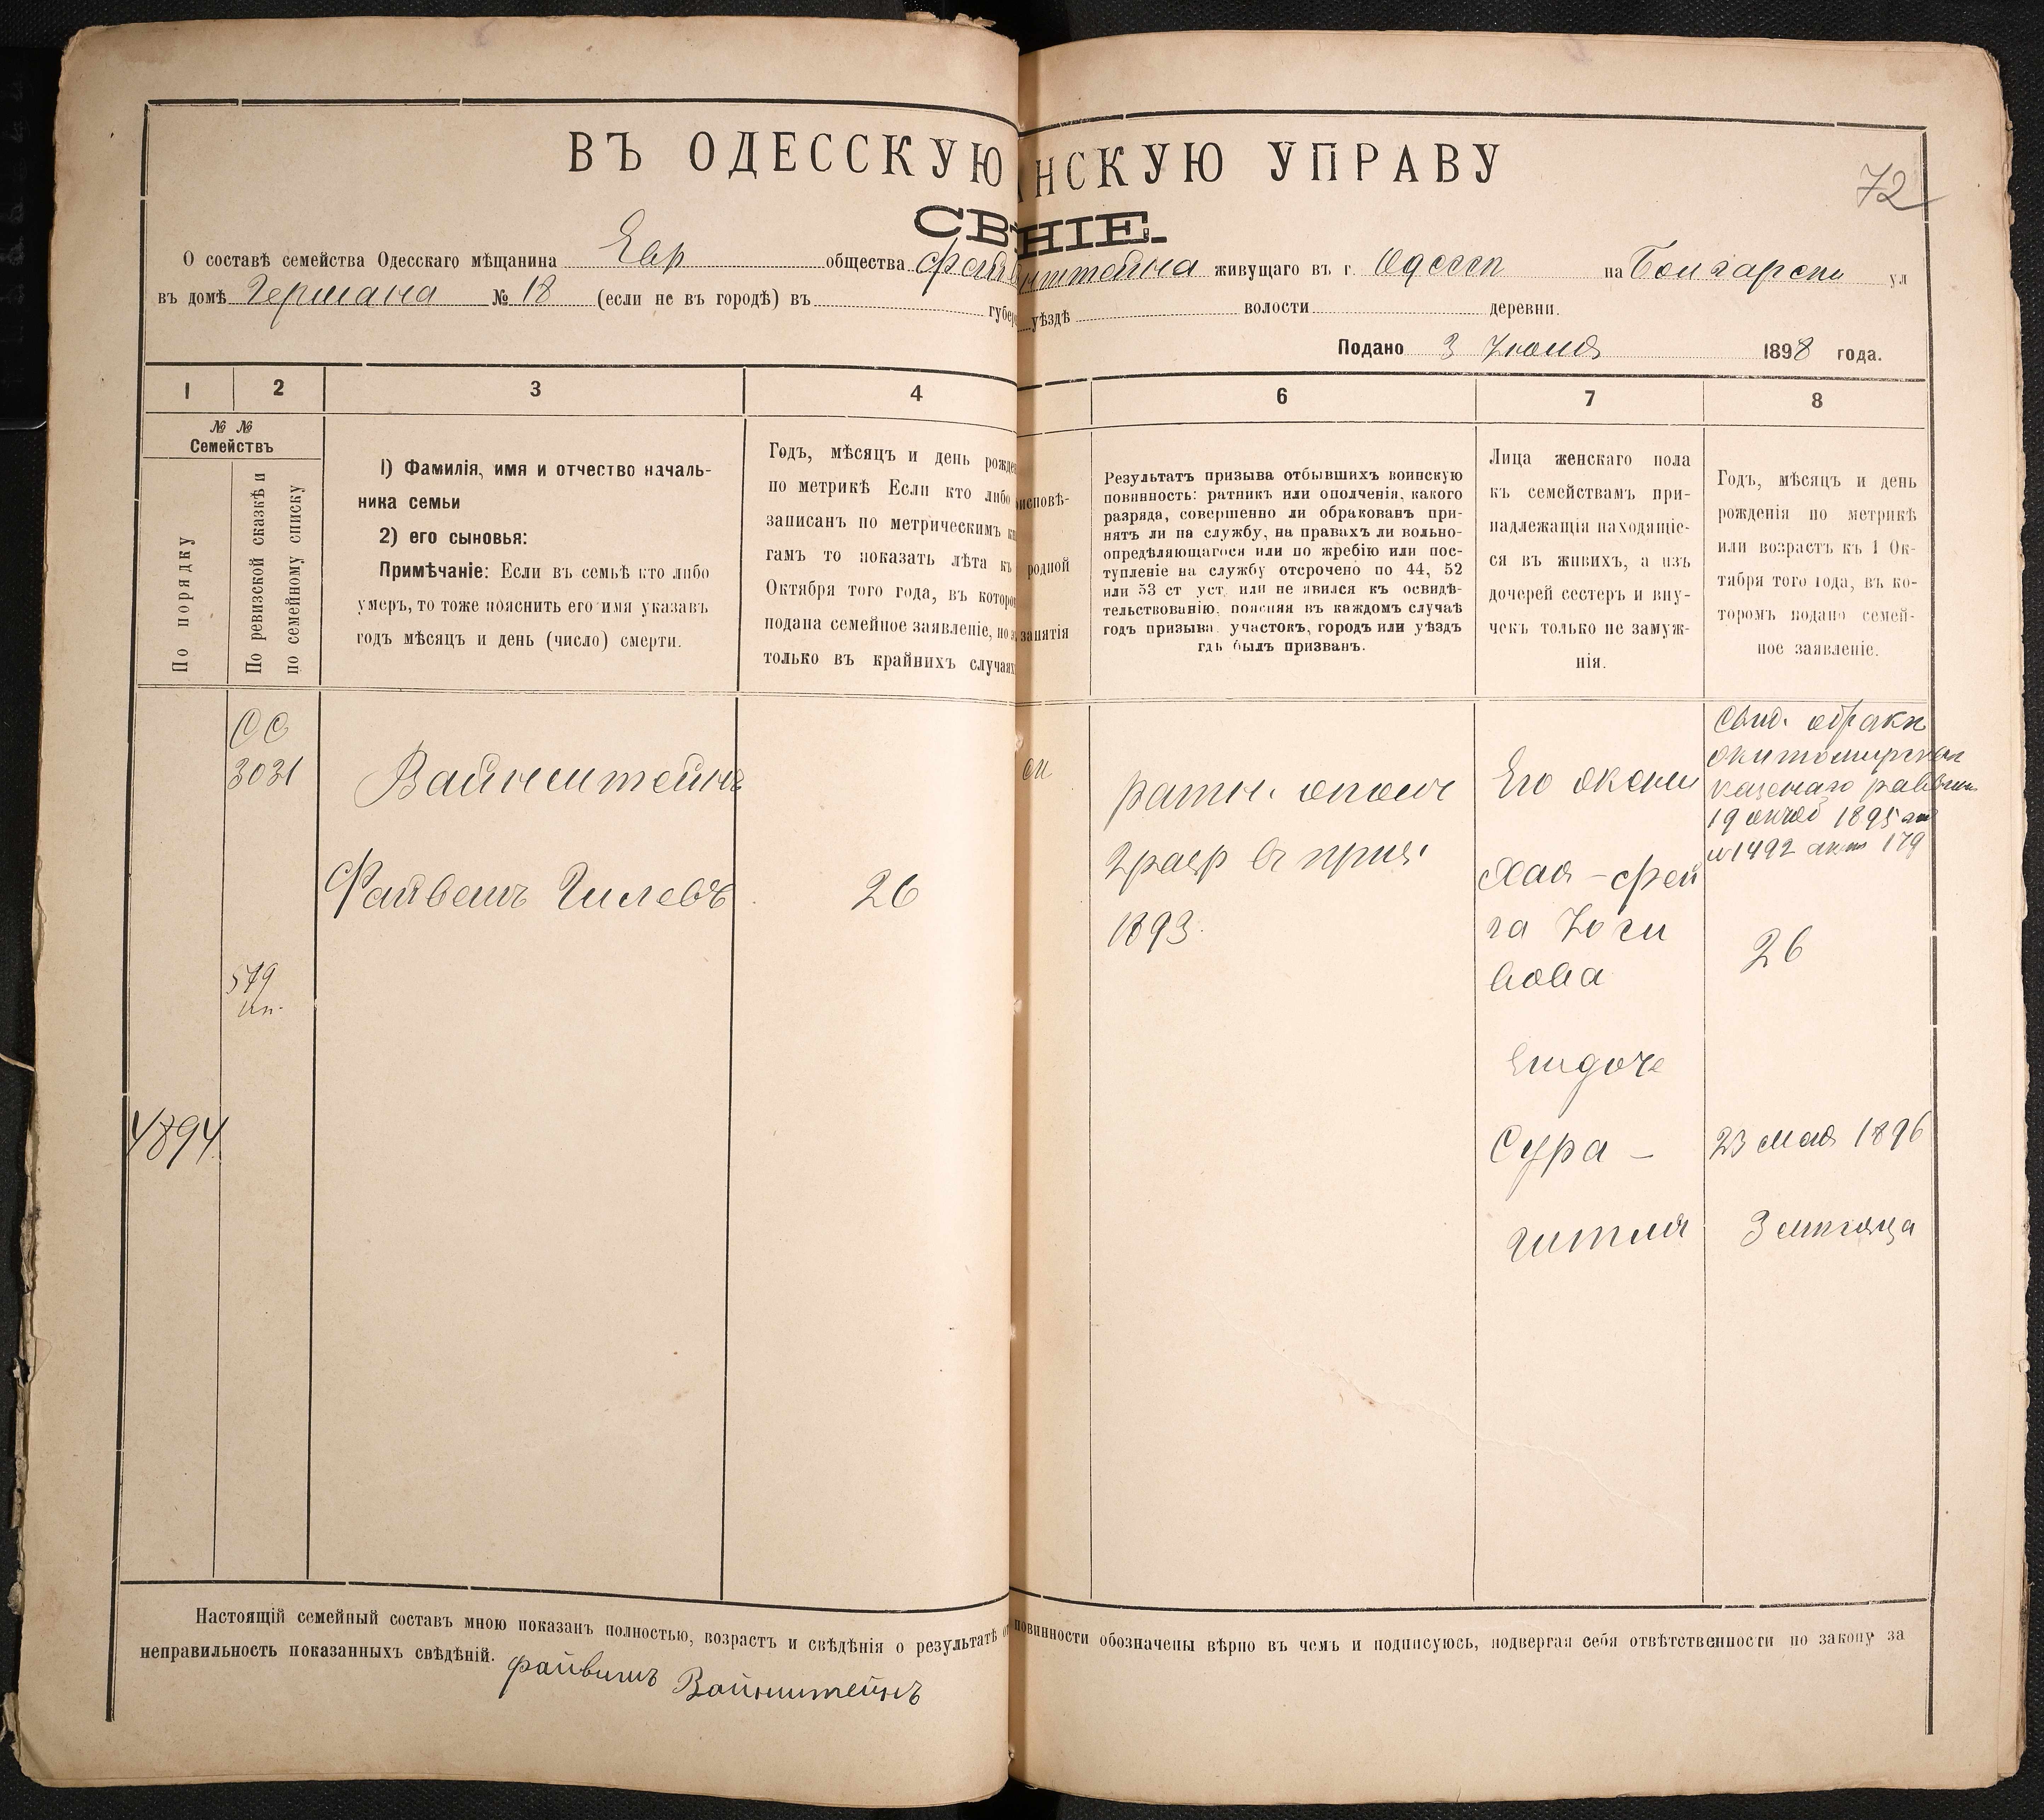 ВЪ ОДЕССКУЮ НСКУЮ УПРАВУ
72
СВ НІЕ.
О составѣ семейства Одесскаго мѣщанина Евр общества живущаго въ г. Одессѣ на Болгарской ул
въ домѣ Германа № 18 (если не въ городѣ) въ губер уѣздѣ волости деревни.
Подано 3 Іюня 1898 года.
1 2 3 4 6 7 8
№ №
Семействъ
По порядку
По ревизской сказкѣ и
по семейному списку
1) Фамилія, имя и отчество началь-
ника семьи
2) его сыновья:
Примѣчаніе: Если въ семьѣ кто либо
умеръ, то тоже пояснить его имя указавъ
годъ мѣсяцъ и день (число) смерти.
Годъ, мѣсяцъ и день рожде
по метрикѣ Если кто либо
записанъ по метрическимъ кн
гамъ то показать лѣта къ
Октября того года, въ которо
подана семейное заявленіе, но э
только въ крайнихъ случаях
исповѣ-
родной
занятія
Результатъ призыва отбывшихъ воинскую
повинность: ратникъ или ополченія, какого
разряда, совершенно ли обракованъ при-
нятъ ли на службу, на правахъ ли вольно-
опредѣляющагося или по жребію или пос-
тупленіе на службу отсрочено по 44, 52
или 53 ст уст. или не явился къ освидѣ-
тельствованію, поясняя въ каждомъ случаѣ
годъ призыва, участокъ, городъ или уѣздъ
гдѣ былъ призванъ.
Лица женскаго пола
къ семействамъ при-
надлежащія находящіе-
ся въ живихъ, а изъ
дочерей сестеръ и вну-
чекъ только не замуж-
нія.
Годъ, мѣсяцъ и день
рожденія по метрикѣ
или возрастъ къ 1 Ок-
тября того года, въ ко-
торомъ подано семей-
ное заявленіе.
ОС
3031
Вайнштейнъ
Файвешъ Гилевъ
26
579
4894
ратн. ополч
2 разр въ приз.
1893.
Его жена
Хая-Фей
га Іоси
вова
Ихъ доче
Сура -
Гитля
Свид. о бракѣ
житомирскаго
казеннаго раввина
19 1895
№ 1492 179
26
23 мая 1896
3 мѣсяца
Настоящій семейный составъ мною показанъ полностью, возрастъ и свѣдѣнія о результатѣ о повинности обозначены вѣрно въ чемъ и подписуюсь, подвергая себя отвѣтственности по закону за
неправильность показанныхъ свѣдѣній. Файвишъ Вайнштейнъ